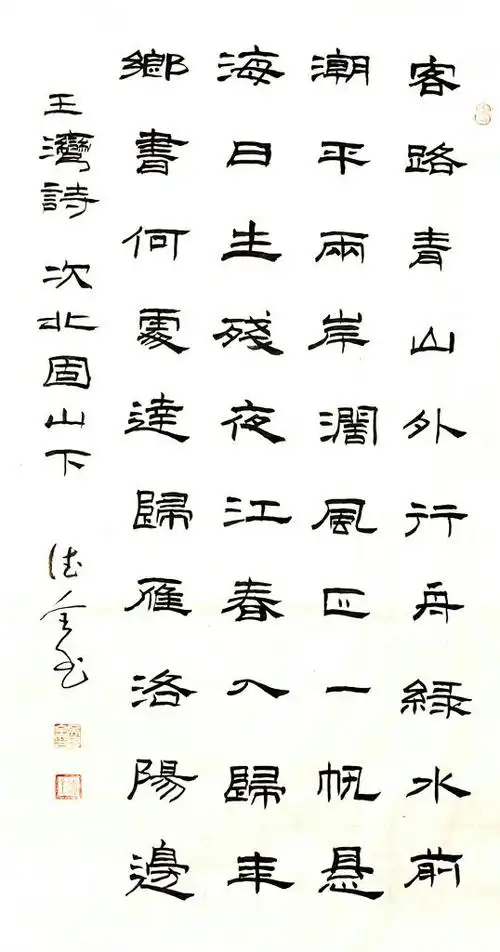 客路青山外行舟綠水前
潮平兩岸闊風正一帆懸
海日生殘夜江春入歸年
鄉書何處達歸雁洛陽邊
王灣詩 次北固山下